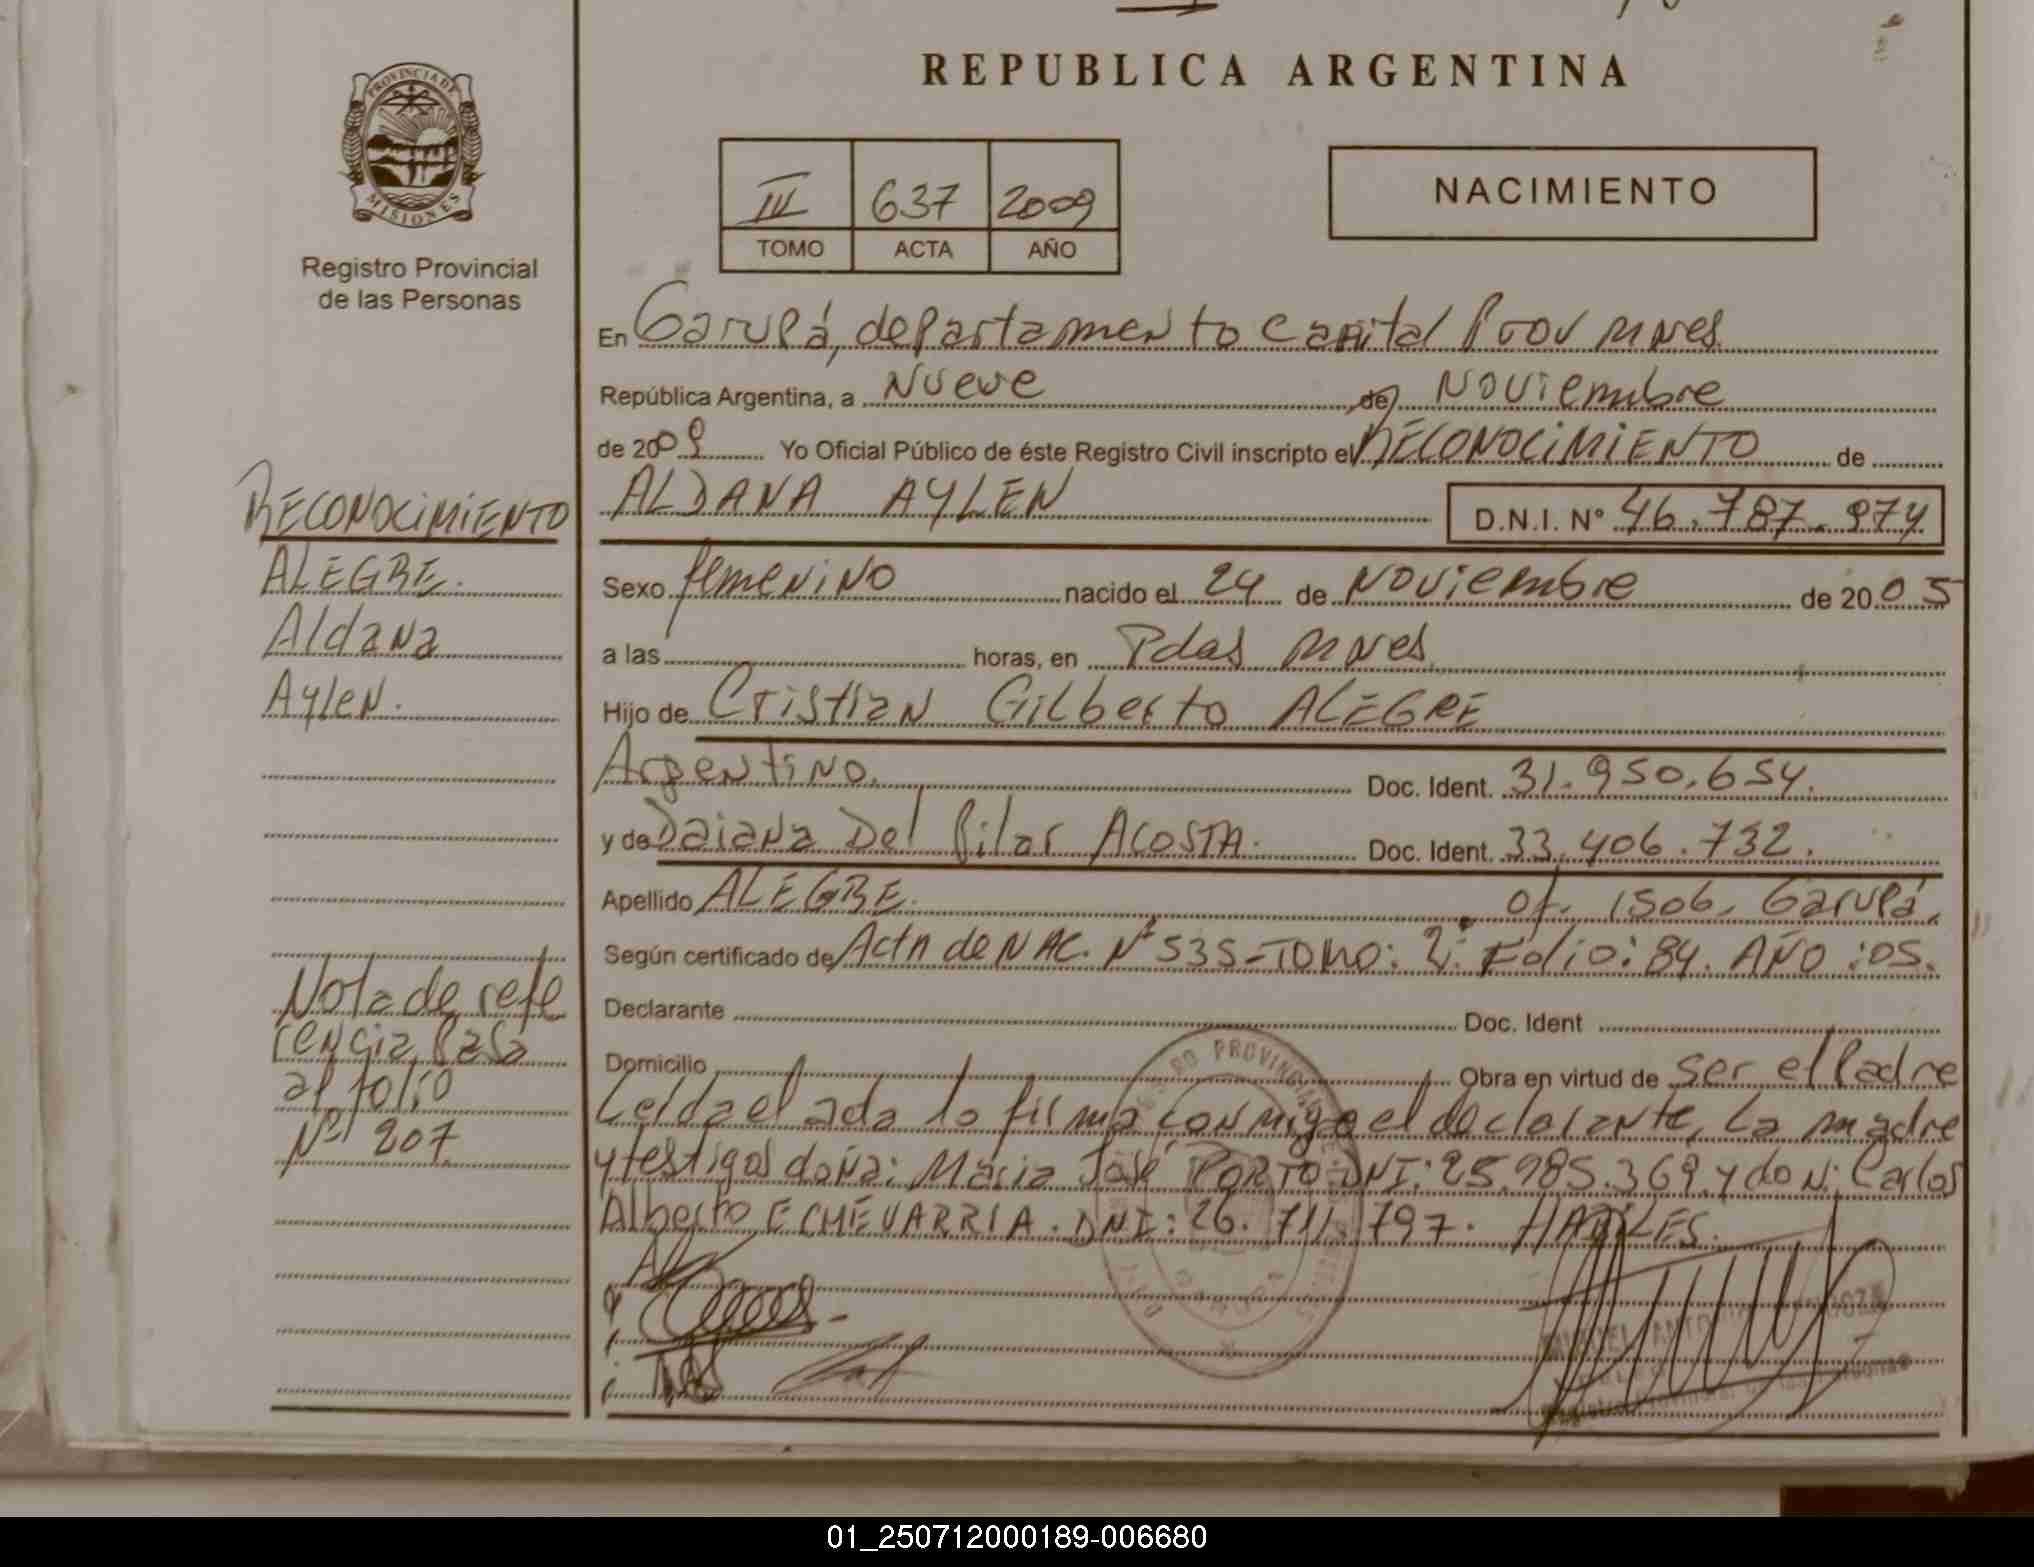 REPUBLICA ARGENTINA
PROVINCIA DE
MISIONES
Registro Provincial
de las Personas
III 637 2009
TOMO ACTA AÑO
NACIMIENTO
En Garupá, departamento Capital Prov mnes
República Argentina, a Nueve de Noviembre
de 2009 Yo Oficial Público de éste Registro Civil inscripto el RECONOCIMIENTO de
ALDANA AYLEN D.N.I. Nº 46.787.974
Sexo femenino nacido el 24 de Noviembre de 2005
a las horas, en Pdas mnes
Hijo de Cristian Gilberto ALEGRE
Argentino. Doc. Ident. 31.950.654.
y de Daiana Del Pilar ACOSTA. Doc. Ident. 33.406.732.
Apellido ALEGRE. of. 1506. Garupá.
Según certificado de Acta de NAC. Nº 535-TOMO: 2: Folio: 84. AÑO :05.
Declarante Doc. Ident
Domicilio Obra en virtud de ser el Padre
Leida el acta la firma conmigo el declarante, la madre
y testigos doña: Maria José PORTO DNI: 25.985.369 y don: Carlos
Alberto ECHEVARRIA. DNI: 26.711.797. HABILES.
RECONOCIMIENTO
ALEGRE.
Aldana
Aylen.
Nota de refe
rencia Pasa
al folio
Nº 207
REGISTRO PROVINCIAL DE
01_250712000189-006680